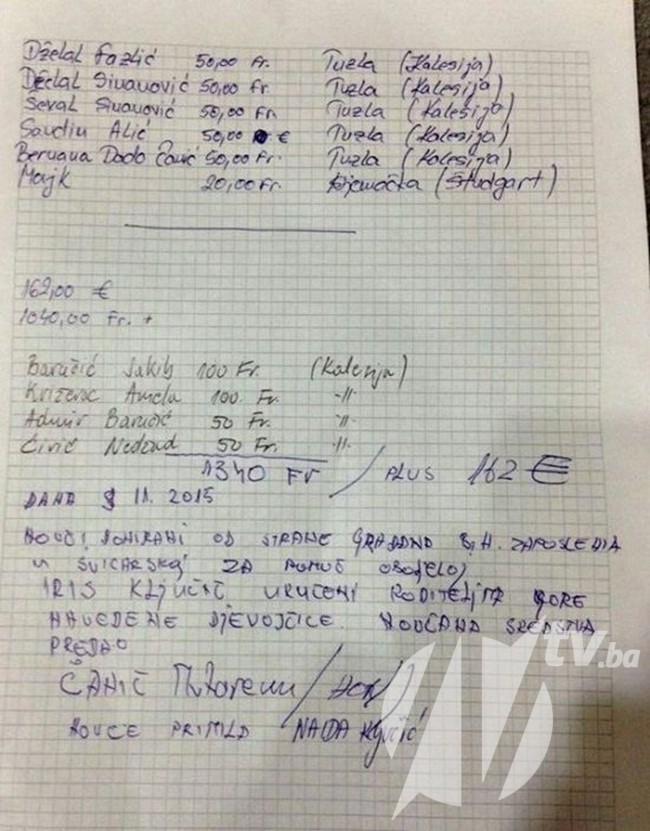 Dželal Fazlić 50,00 Fr. Tuzla (Kalesija)
Dželal Sinanović 50,00 Fr. Tuzla (Kalesija)
Seval Sinanović 50,00 Fr. Tuzla (Kalesija)
Saudin Alić 50,00 € Tuzla (Kalesija)
Bernana Dado Čanić 50,00 Fr. Tuzla (Kalesija)
Majk 20,00 Fr. Njemačka (Študgart)
162,00 €
1040,00 Fr. +
Baručić Jakib 100 Fr. (Kalesija)
Križevac Amela 100 Fr. -II-
Admir Baručić 50 Fr. -II-
Ćivić Nedzad 50 Fr. -II-
1340 Fr / PLUS 162 €
DANA 8 11. 2015
NOVCI DONIRANI OD STRANE GRAĐANA B.H. ZAPOSLENIA
U ŠVICARSKOJ ZA POMOĆ OBOJELOJ
IRIS KLJUČIĆ URUČENI RODITELJIMA GORE
NAVEDENE DJEVOJČICE. NOVČANA SREDSTVA
PREDAO
ČANIĆ
NOVCE PRIMILA NAIDA Ključić
tv.ba